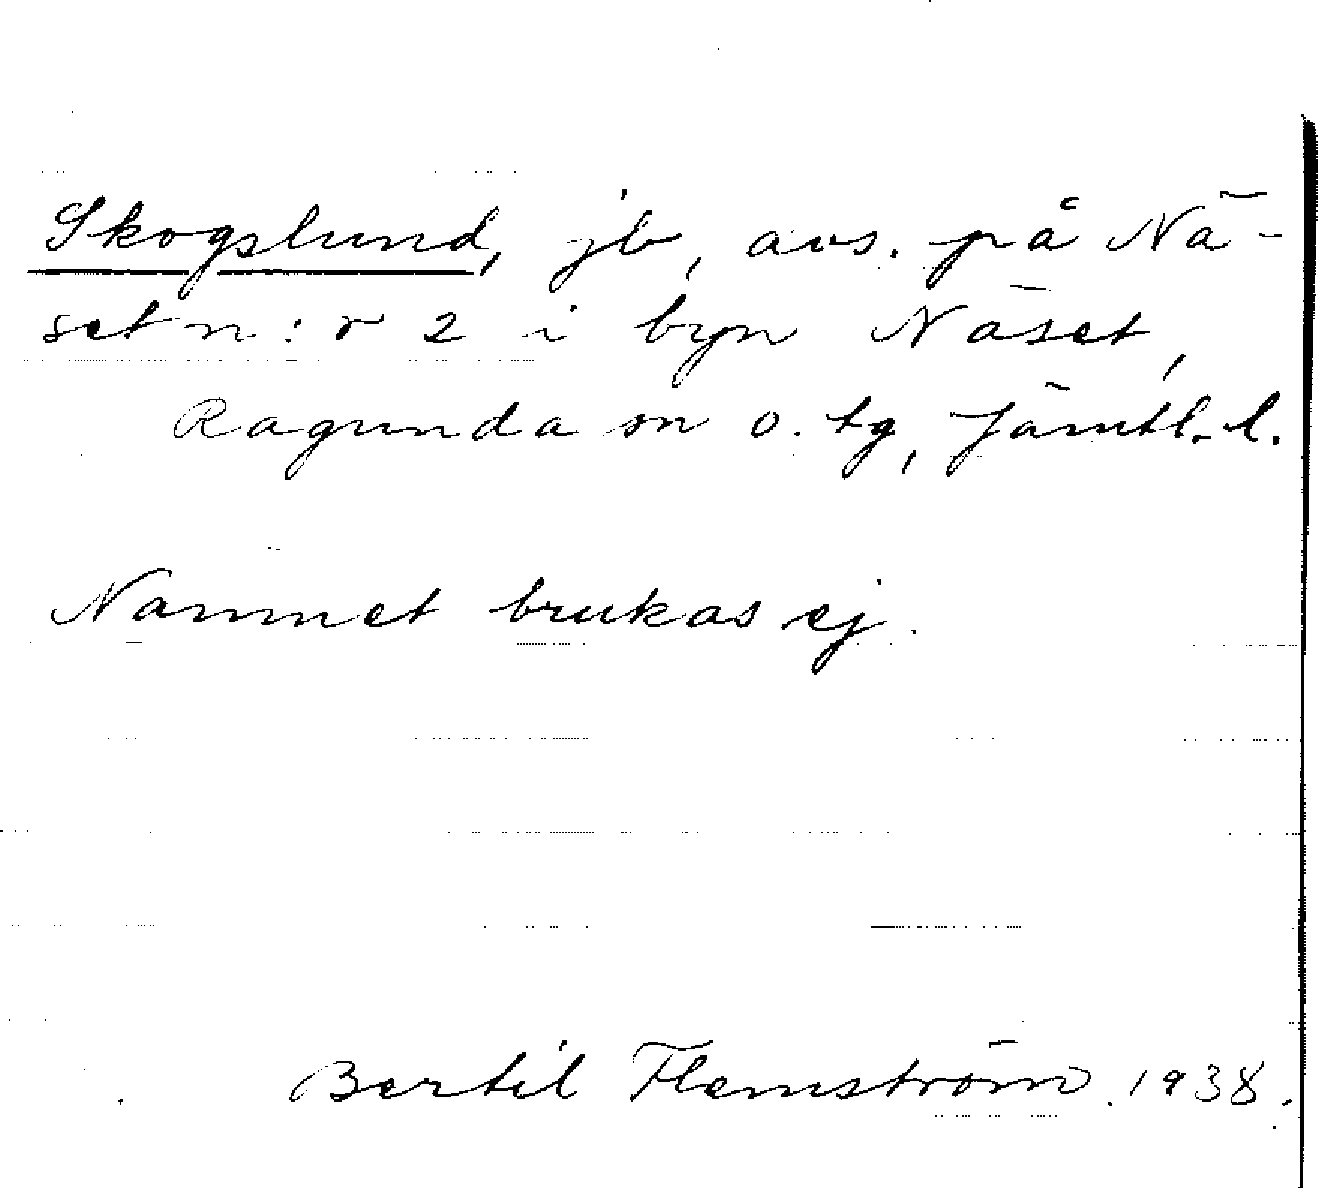 Skogslund, jb, avs. på Nä-
set n:r 2 i byn Näset,
Ragunda sn o. tg, Jämtl. l.
Namnet brukas ej.
Bertil Flemström. 1938.